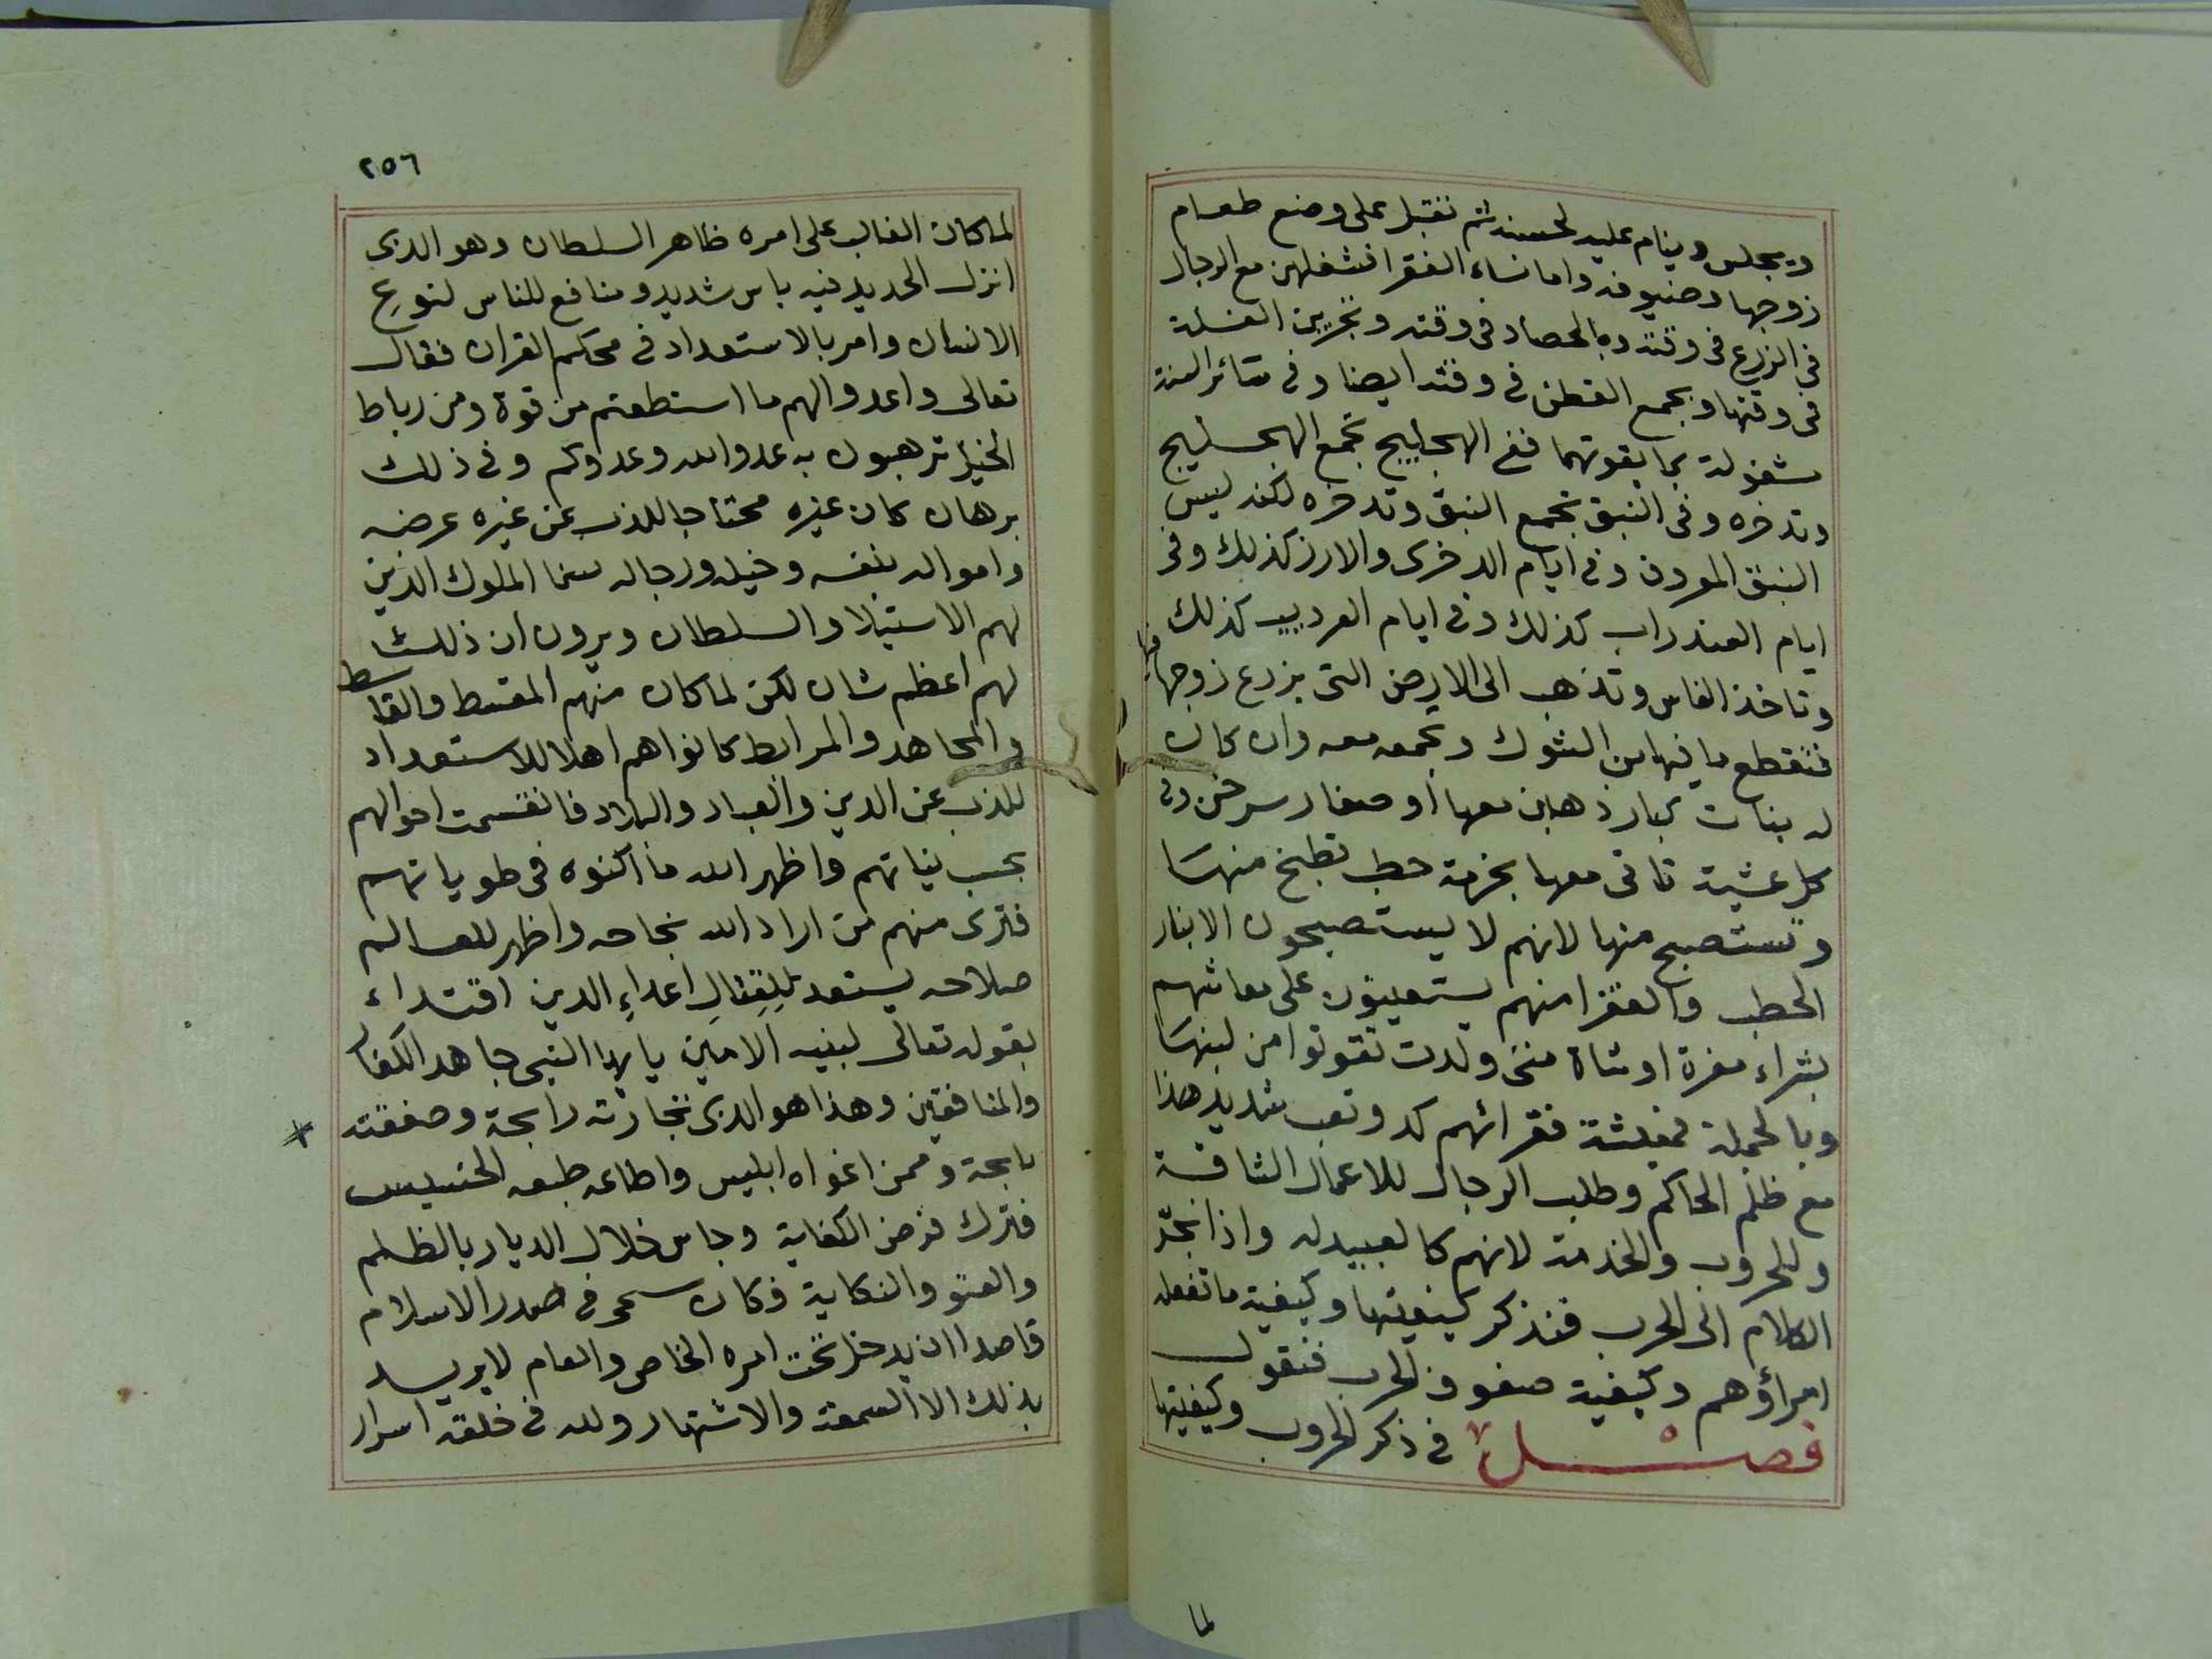 ويجلس وينام عليه لحسنه ثم تقبل على وضع طعام
زوجها وضيوفه واما نساء الفقرا فشغلهن مع الرجال
في الزرع في وقته وبالحصاد في وقته وتجرين الغلة
في وقتها وبجمع القطن في وقته ايضا وفي سائر السنة
مشغولة بما يقوتهما ففي الهجليج تجمع الهجليج
وتدخره وفي النبق تجمع النبق وتدخره لكنه ليس
النبق المعروف وفي ايام الدفرى والارز كذلك وفي
ايام العندراب كذلك وفي ايام العرديب كذلك
وتاخذ الفاس وتذهب الى الارض التي يزرع زوجها فيها
فتقطع ما فيها من الشوك وتجمعه معه وان كان
له بنات كبار ذهبن معها او صغار سرحن وفي
كل عشية تاتى معها بحزمة حطب تطبخ منها
وتستصبح منها لانهم لا يستصبحون الا بنار
الحطب والفقرا منهم يستعينون على معاشهم
بشراء بقرة او شاة متى ولدت تقوتوا من لبنها
وبالجملة فمعيشة فقرائهم كد وتعب شديد هذا
مع ظلم الحاكم وطلب الرجال للاعمال الشاقة
وللحروب والخدمة لانهم كالعبيد له واذا نجر
الكلام الى الحرب فنذكر كيفيتها وكيفية ما تفعله
امراؤهم وكيفية صفوف الحرب فنقول
فصل في ذكر الحروب وكيفيتها
لما
٢٥٦
لما كان الغالب على امره ظاهر السلطان وهو الذى
انزل الحديد فيه باس شديد ومنافع للناس لنوع
الانسان وامر بالاستعداد في محكم القران فقال
تعالى واعدوا لهم ما استطعتم من قوة ومن رباط
الخيل ترهبون به عدو الله وعدوكم وفي ذلك
برهان كان غيره محتاجا للذب عن غيره عرضه
وامواله بنفسه وخيله ورجاله سيما الملوك الذين
لهم الاستيلا والسلطان ويرون ان ذلك
لهم اعظم شان لكن لما كان منهم المقسط والقاسط
والمجاهد والمرابط كانوا هم اهلا للاستعداد
للذب عن الدين والعباد والبلاد فانقسمت احوالهم
بحسب نياتهم واظهر الله ما اكنوه في طوياتهم
فترى منهم من اراد الله نجاحه واظهر للعالم
صلاحه يستعد لقتال اعداء الدين اقتداء
بقوله تعالى لنبيه الامين يا ايها النبي جاهد الكفار
والمنافقين وهذا هو الذى تجارته رابحة وصفقته
ناجحة وممن اغواه ابليس واطاعه طبعه الخسيس
فترك فرض الكفاية وجاس خلال الديار بالظلم
والعتو والنكاية فكان سمى في صدر الاسلام
قاصدا ان يدخل تحت امره الخاص والعام لا يريد
بذلك الا السمعة والاشتهار ولله في خلقه اسرار